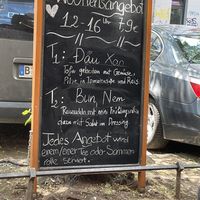 Wochenangebot
12-16 Uhr 7,9€
T1: Đậu Xào
Tofu gebraten mit Gemüse,
Pilze in Tomatensoße und Reis.
T2: Bún Nem
Reisnudeln mit mini Frühlingsrollen
dazu mit Salat im Dressing
Jedes Angebot wird
einem/einer Tee oder Sommer
rolle serviert.
B